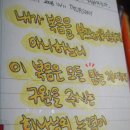 THURSDAY
내가 복음을 부끄러워하지
아니하노니
이 복음은 모든 믿는 자에게
구원을 주시는
하나님의 능력이